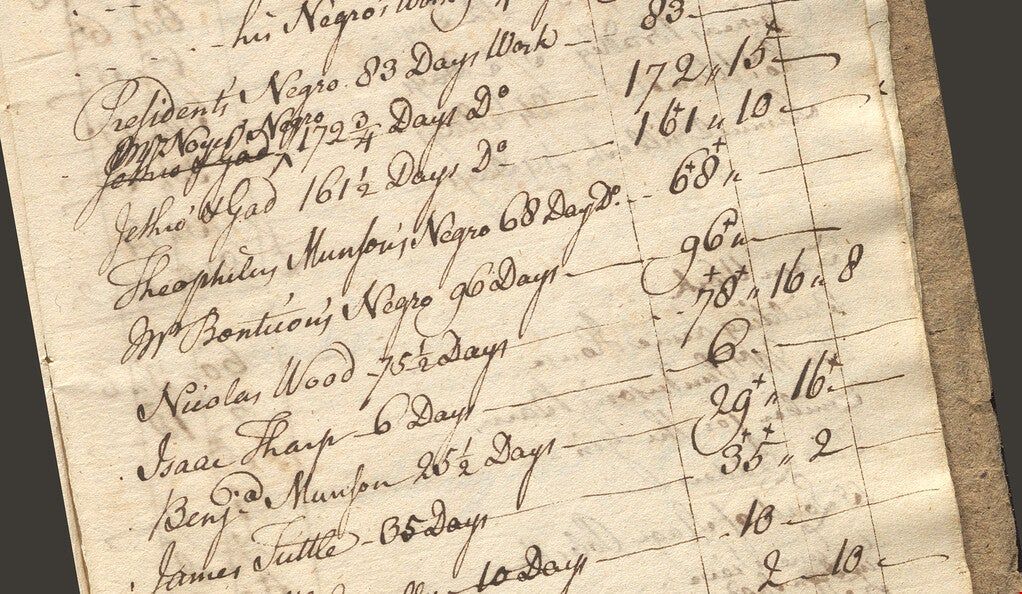 his Negro's Work
Presidents Negro 83 Days Work 83
Mr Noyes's Negro
Jethro & Gad 172 3/4 Days Do 172 " 15
Jethro & Gad 161 1/2 Days Do 161 " 10
Theophilus Munson's Negro 68 Days Do 68 "
Mr Bonticou's Negro 96 Days 96 "
Nicolas Wood 75 1/2 Days 78 " 16 " 8
Isaac Tharp 6 Days 6
Benj.a Munson 25 1/2 Days 29 " 16
James Tuttle 35 Days 35 " 2
10 Days 10
2 10